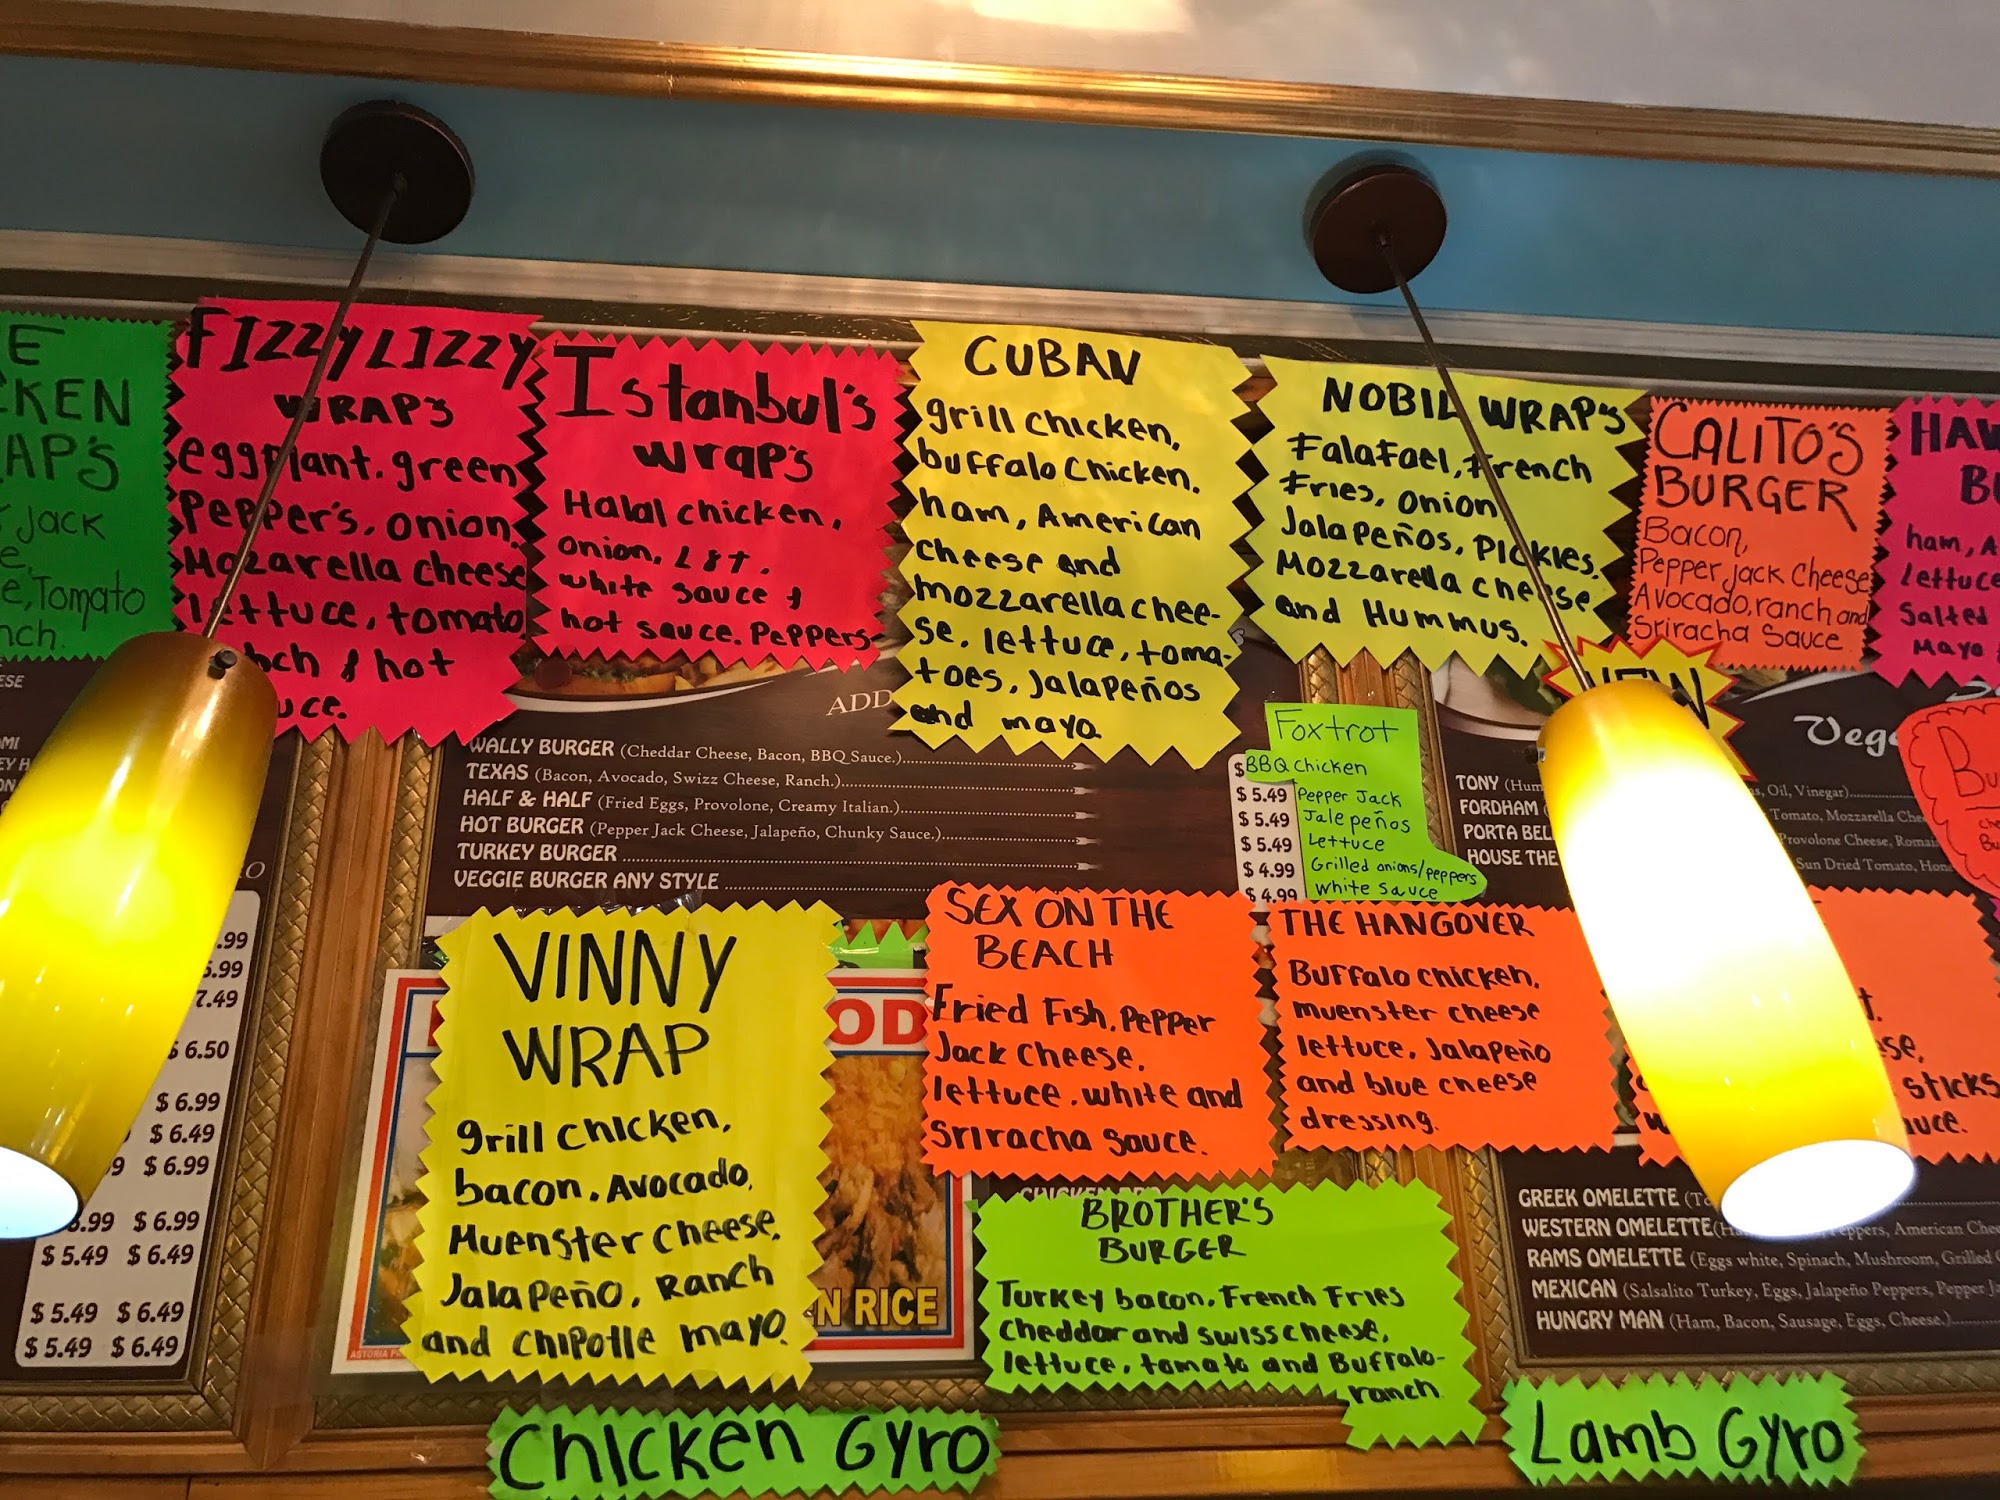 KEN
Jack
Tomato
FIZZYLIZZY
WRAP'S
eggplant. green
PePPer's, onion.
Mozarella cheese
lettuce, tomato
& hot
Istanbul's
wrap's
Halal chicken,
onion, L & t.
white sauce &
hot sauce. PePPers
CUBAN
grill chicken,
buffalo Chicken.
ham, American
cheese and
mozzarella chee-
se, lettuce, toma-
toes, Jalapeños
and mayo.
NOBIL WRAP'S
FalaFael, French
Fries, onion
JalaPeños, Pickles.
Mozzarella cheese
and Hummus.
CALITO'S
BURGER
Bacon,
Pepper Jack Cheese
Avocado, ranch and
Sriracha Sauce
ham,
lettuce
Salted
Mayo
NEW
ADD
WALLY BURGER (Cheddar Cheese, Bacon, BBQ Sauce.)
TEXAS (Bacon, Avocado, Swizz Cheese, Ranch.)
HALF & HALF (Fried Eggs, Provolone, Creamy Italian.)
HOT BURGER (Pepper Jack Cheese, Jalapeño, Chunky Sauce.)
TURKEY BURGER
VEGGIE BURGER ANY STYLE
$
$ 5.49
$ 5.49
$ 5.49
$ 4.99
$ 4.99
Foxtrot
BBQ Chicken
Pepper Jack
Jalepeños
Lettuce
Grilled onions/peppers
White Sauce
TONY
FORDHAM
PORTA BEL
HOUSE THE
Oil, Vinegar)
Tomato, Mozzarella
Provolone Cheese,
Sun Dried Tomato,
VINNY
WRAP
grill chicken,
bacon, Avocado,
Muenster cheese,
JalaPeño, Ranch
and chiPotle mayo.
SEX ON THE
BEACH
Fried Fish, PePPer
Jack cheese,
lettuce, white and
Sriracha Sauce.
THE HANGOVER
Buffalo chicken,
muenster cheese
lettuce, JalaPeño
and blue cheese
dressing.
STICKS
BROTHER'S
BURGER
Turkey bacon, French Fries
cheddar and swiss cheese,
lettuce, tomato and Buffalo-
ranch
RICE
GREEK OMELETTE
WESTERN OMELETTE
American
RAMS OMELETTE (Eggs white, Spinach, Mushroom, Grilled
MEXICAN (Salsalito Turkey, Eggs, Jalapeño Peppers, Pepper
HUNGRY MAN (Ham, Bacon, Sausage, Eggs, Cheese.)
.99
5.99
7.49
$ 6.50
$ 6.99
$ 6.49
$ 6.99
$ 6.99
$ 5.49 $ 6.49
$ 5.49 $ 6.49
$ 5.49 $ 6.49
Chicken Gyro
Lamb Gyro